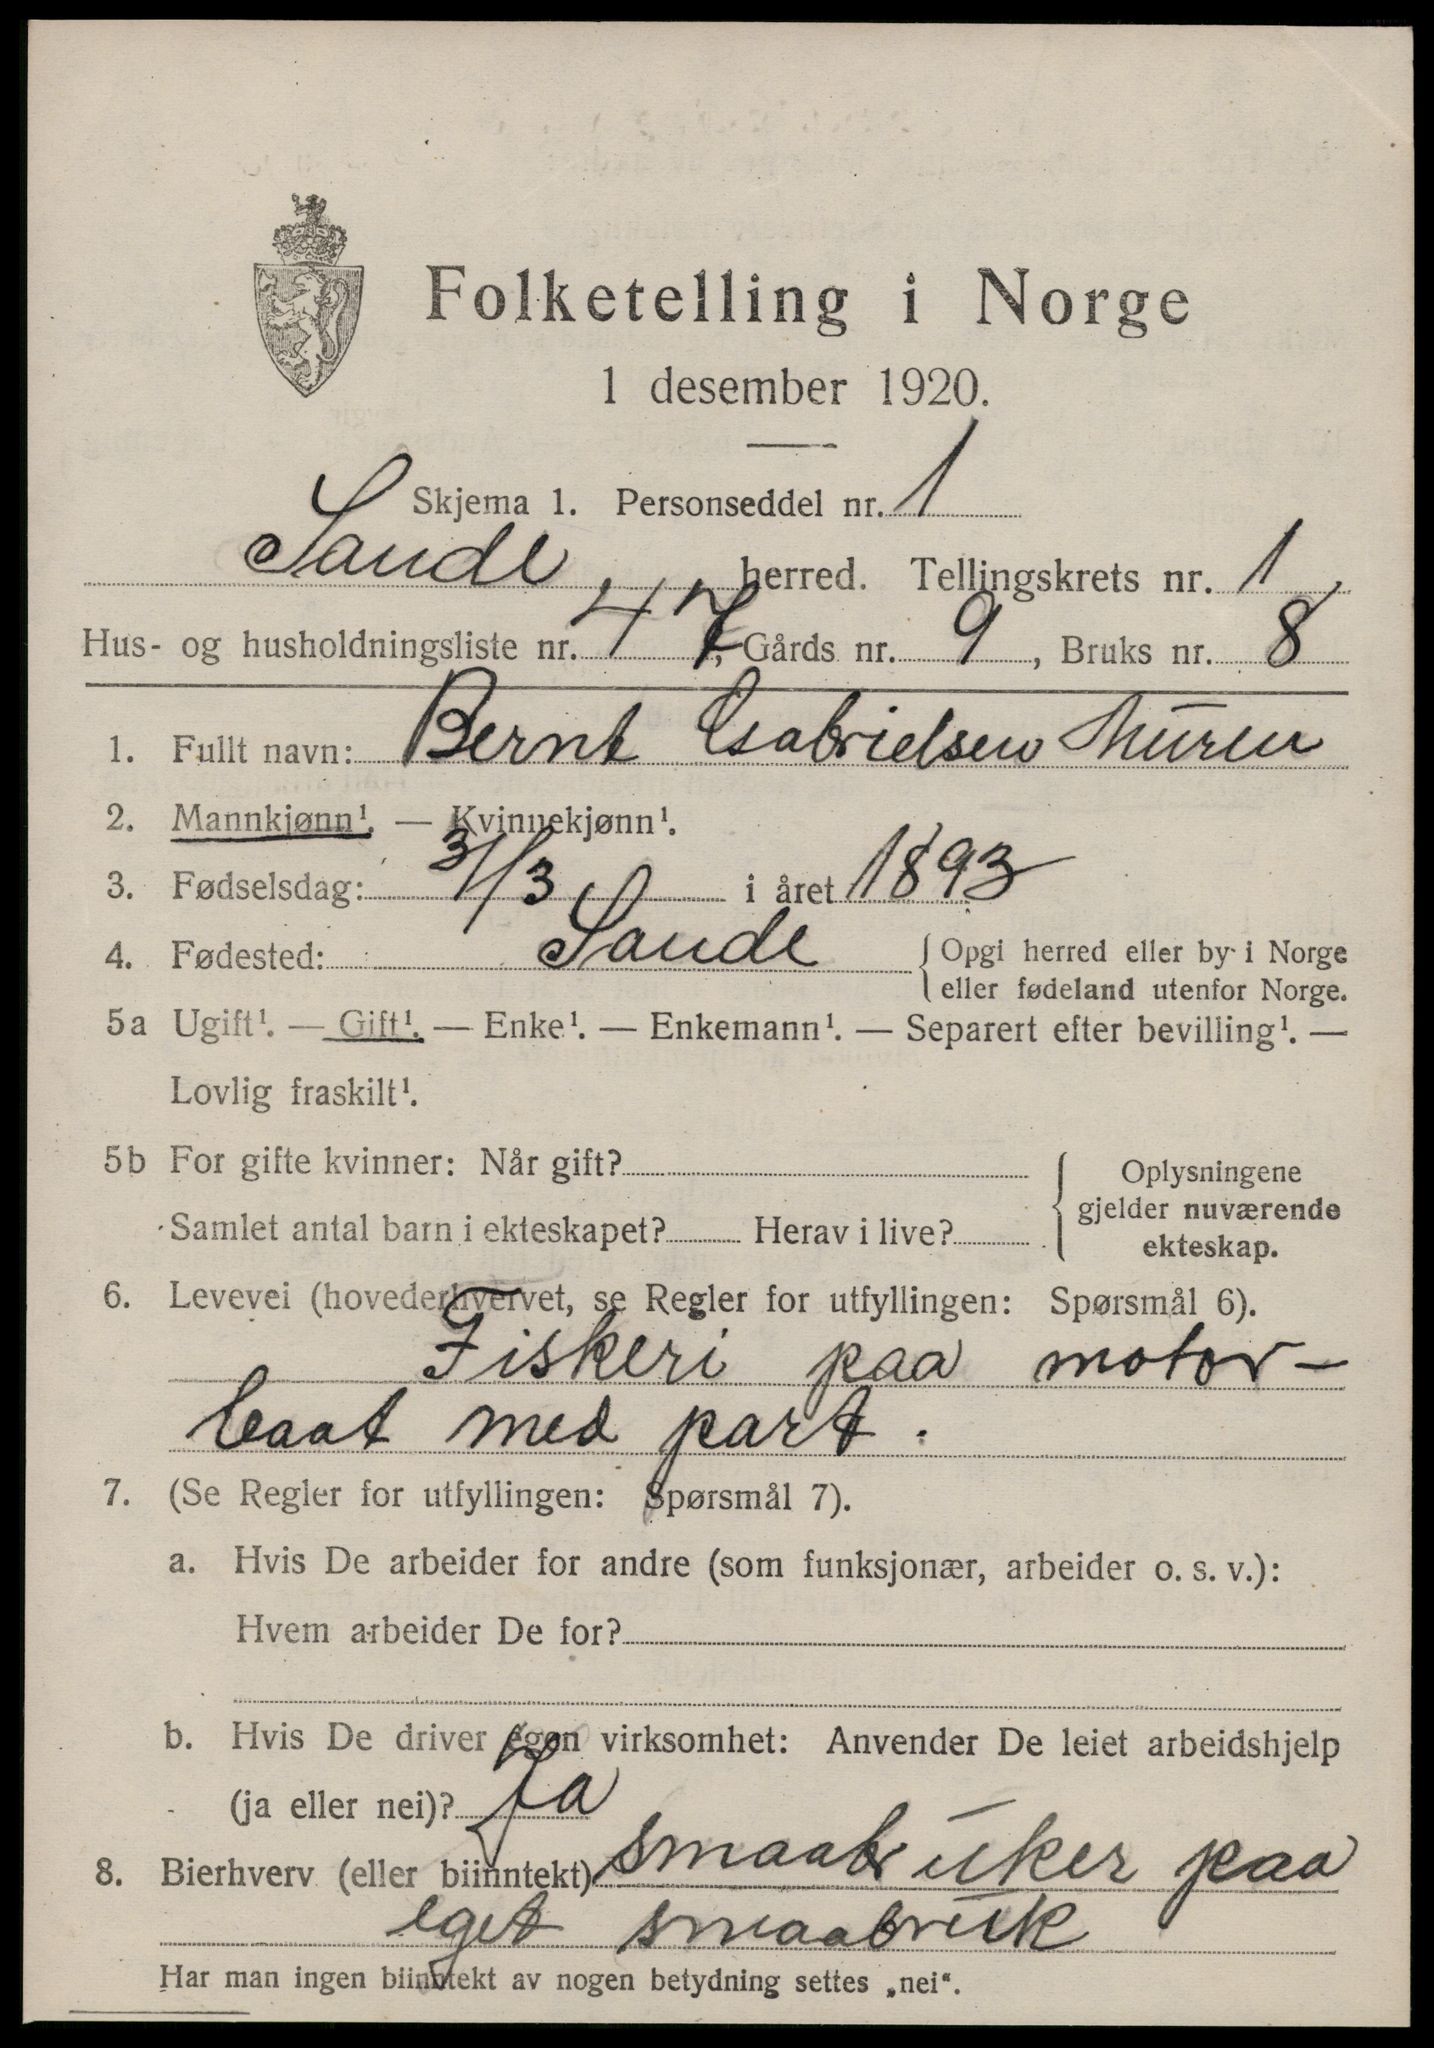 Folketelling i Norge
1 desember 1920.
Skjema 1. Personseddel nr. 1
Sande herred. Tellingskrets nr. 1
Hus- og husholdningsliste nr. 47, Gårds nr. 9, Bruks nr. 8
1. Fullt navn: Bernt Gabrielsen
2. Mannkjønn¹. — Kvinnekjønn¹.
3. Fødselsdag: 31/3 i året 1893
4. Fødested: Sande { Opgi herred eller by i Norge
eller fødeland utenfor Norge.
5a Ugift¹. — Gift¹. — Enke¹. — Enkemann¹. — Separert efter bevilling¹. —
Lovlig fraskilt¹.
5b For gifte kvinner: Når gift? { Oplysningene
gjelder nuværende
Samlet antal barn i ekteskapet? Herav i live?
ekteskap.
6. Levevei (hovederhvervet, se Regler for utfyllingen: Spørsmål 6).
Fiskeri paa motor-
baat med part.
7. (Se Regler for utfyllingen: Spørsmål 7).
a. Hvis De arbeider for andre (som funksjonær, arbeider o. s. v.):
Hvem arbeider De for?
b. Hvis De driver egen virksomhet: Anvender De leiet arbeidshjelp
(ja eller nei)? Ja
8. Bierhverv (eller biinntekt) smaabruker paa
eget smaabruk
Har man ingen biinntekt av nogen betydning settes „nei“.